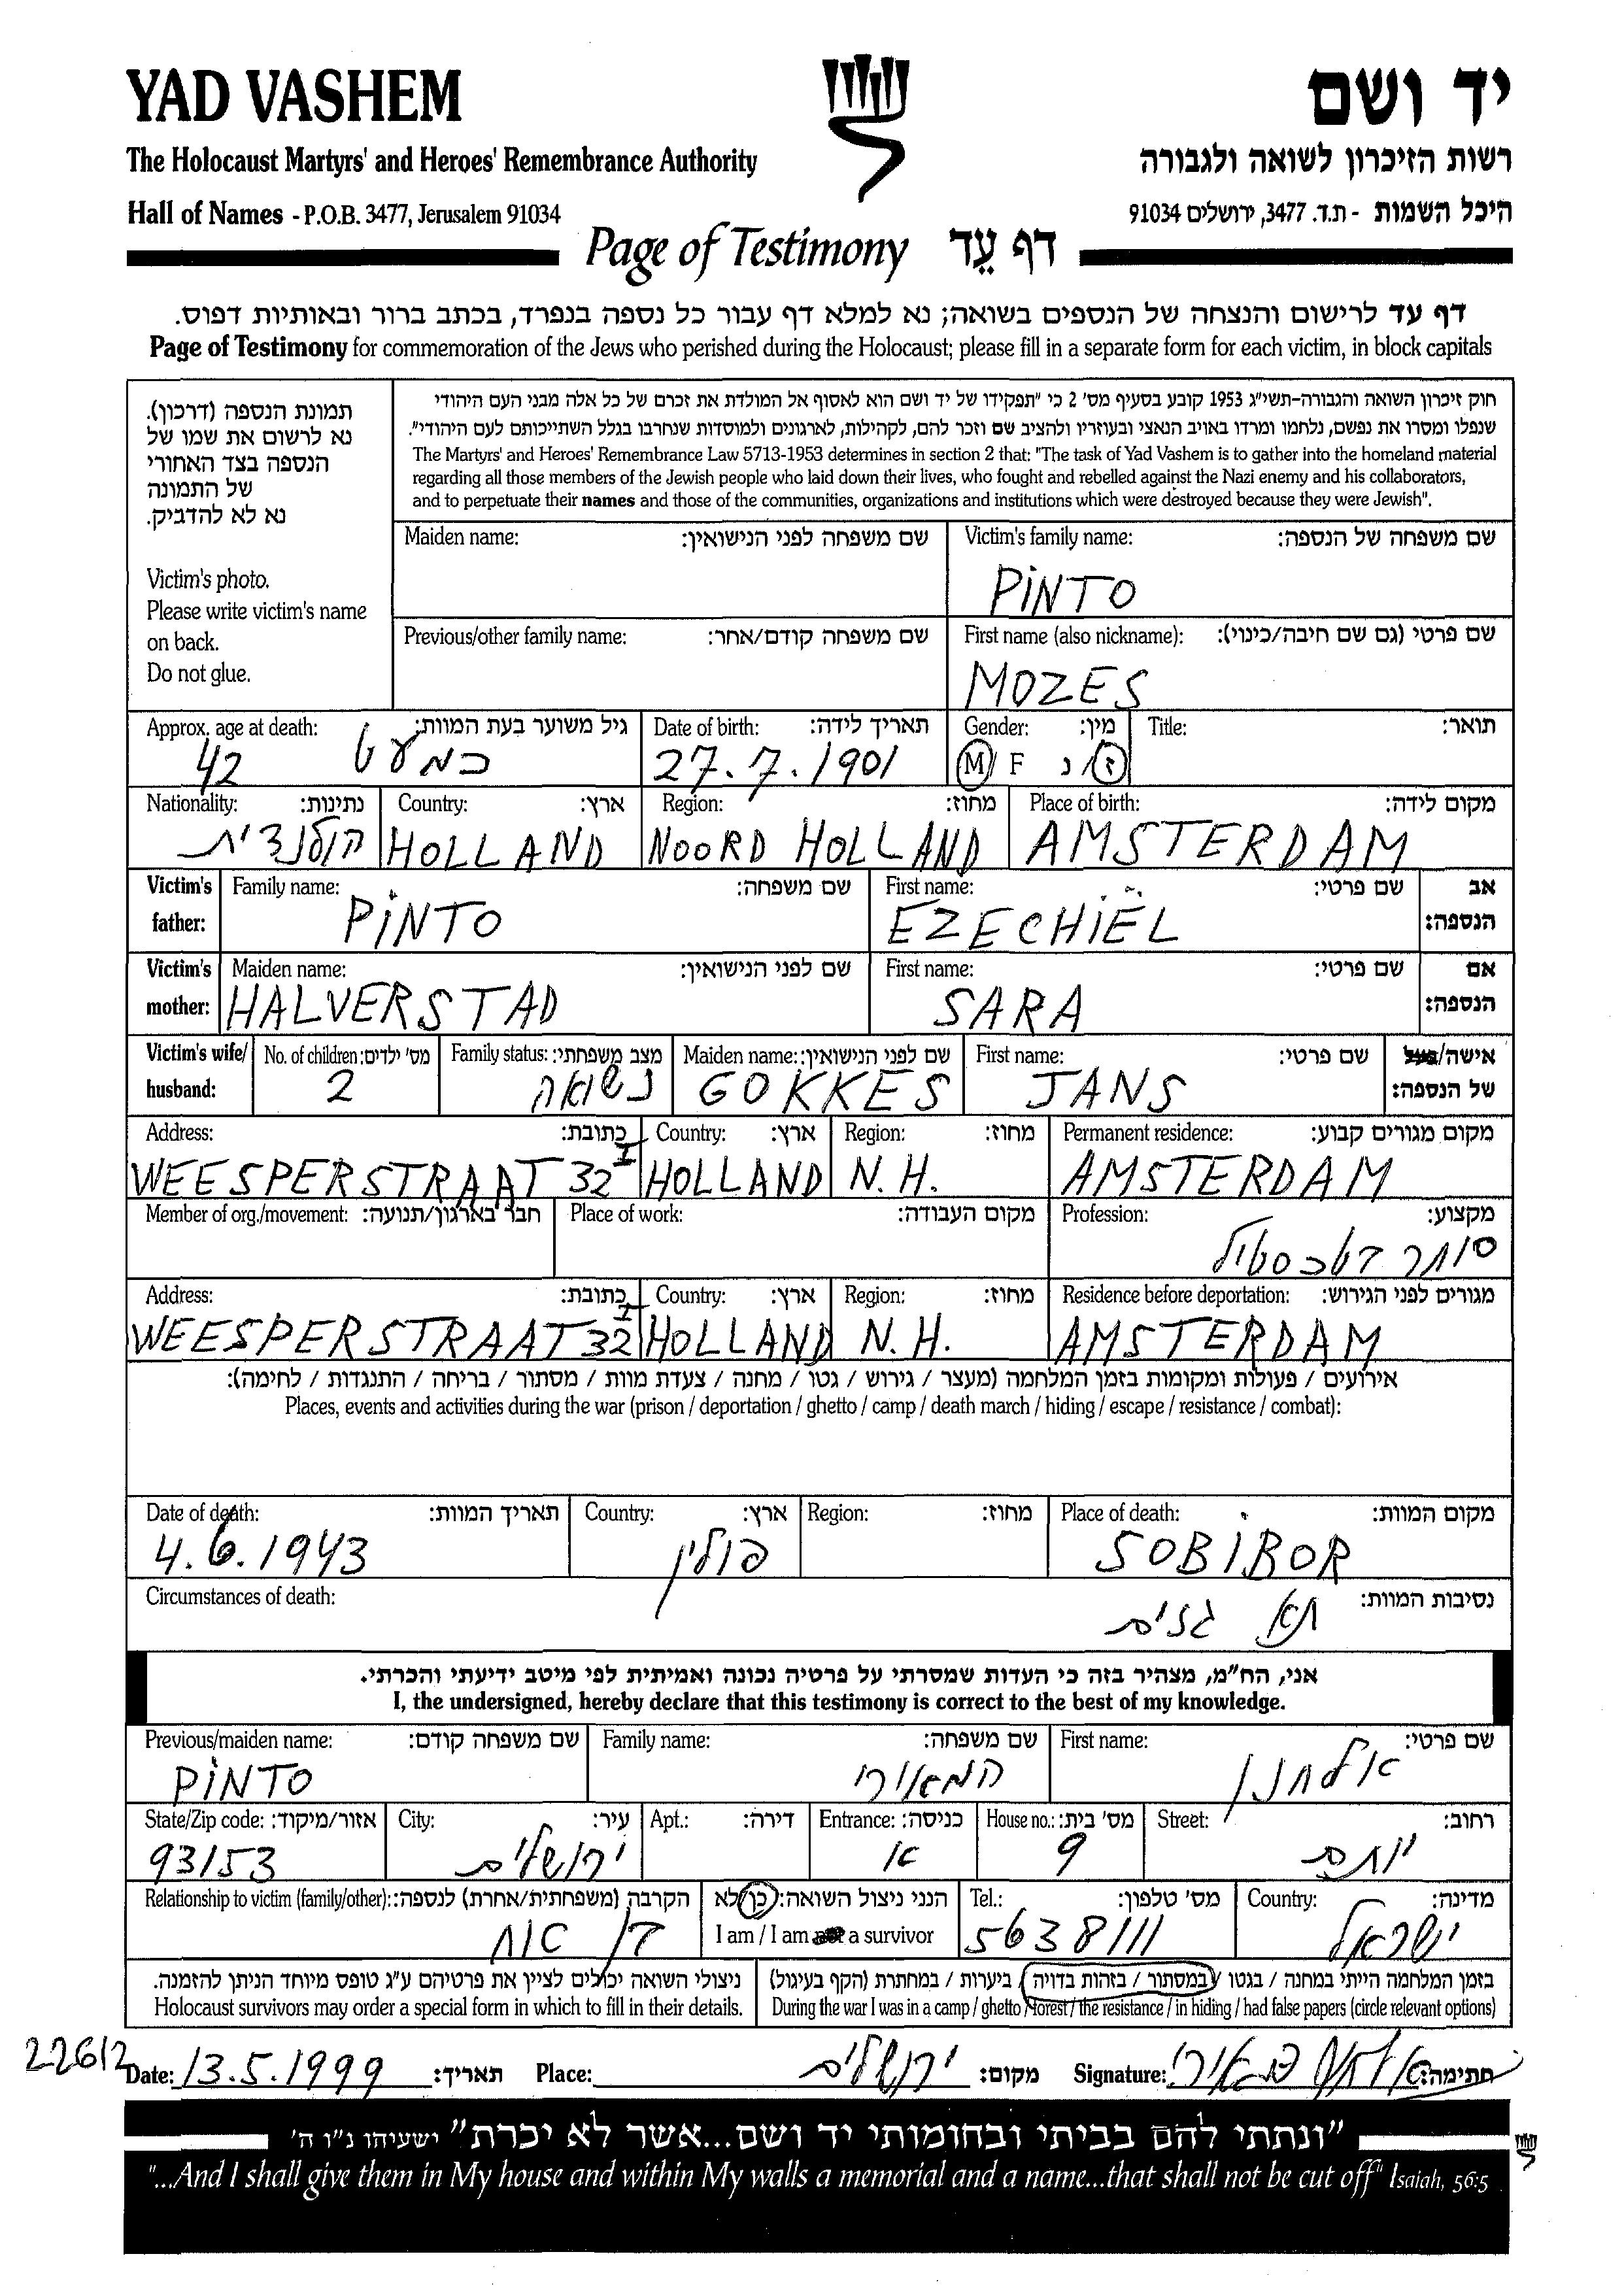 YAD VASHEM
יד ושם
The Holocaust Martyrs' and Heroes' Remembrance Authority
רשות הזיכרון לשואה ולגבורה
Hall of Names - P.O.B. 3477, Jerusalem 91034
היכל השמות - ת.ד. 3477, ירושלים 91034
Page of Testimony דף עֵד
דף עד לרישום והנצחה של הנספים בשואה; נא למלא דף עבור כל נספה בנפרד, בכתב ברור ובאותיות דפוס.
Page of Testimony for commemoration of the Jews who perished during the Holocaust; please fill in a separate form for each victim, in block capitals
תמונת הנספה (דרכון).
נא לרשום את שמו של
הנספה בצד האחורי
של התמונה
נא לא להדביק.
Victim's photo.
Please write victim's name
on back.
Do not glue.
חוק זיכרון השואה והגבורה-תשי"ג 1953 קובע בסעיף מס' 2 כי "תפקידו של יד ושם הוא לאסוף אל המולדת את זכרם של כל אלה מבני העם היהודי
שנפלו ומסרו את נפשם, נלחמו ומרדו באויב הנאצי ובעוזריו ולהציב שם וזכר להם, לקהילות, לארגונים ולמוסדות שנחרבו בגלל השתייכותם לעם היהודי".
The Martyrs' and Heroes' Remembrance Law 5713-1953 determines in section 2 that: "The task of Yad Vashem is to gather into the homeland material
regarding all those members of the Jewish people who laid down their lives, who fought and rebelled against the Nazi enemy and his collaborators,
and to perpetuate their names and those of the communities, organizations and institutions which were destroyed because they were Jewish".
Maiden name: שם משפחה לפני הנישואין: Victim's family name: שם משפחה של הנספה:
PINTO
Previous/other family name: שם משפחה קודם/אחר: First name (also nickname): שם פרטי (גם שם חיבה/כינוי):
MOZES
Approx. age at death: גיל משוער בעת המוות: Date of birth: תאריך לידה: Gender: מין: Title: תואר:
42 כמעט 27.7.1901 M/ F ז/נ
Nationality: נתינות: Country: ארץ: Region: מחוז: Place of birth: מקום לידה:
הולנדית HOLLAND NOORD HOLLAND AMSTERDAM
Victim's father: Family name: שם משפחה: First name: שם פרטי: אב הנספה:
PINTO EZECHIËL
Victim's mother: Maiden name: שם לפני הנישואין: First name: שם פרטי: אם הנספה:
HALVERSTAD SARA
Victim's wife/ husband: No. of children: מס' ילדים: Family status: מצב משפחתי: Maiden name: שם לפני הנישואין: First name: שם פרטי: אישה/בעל של הנספה:
2 נשואה GOKKES JANS
Address: כתובת: Country: ארץ: Region: מחוז: Permanent residence: מקום מגורים קבוע:
WEESPERSTRAAT 32 I HOLLAND N.H. AMSTERDAM
Member of org./movement: חבר בארגון/תנועה: Place of work: מקום העבודה: Profession: מקצוע:
סוחר טכסטיל
Address: כתובת: Country: ארץ: Region: מחוז: Residence before deportation: מגורים לפני הגירוש:
WEESPERSTRAAT 32 I HOLLAND N.H. AMSTERDAM
אירועים / פעולות ומקומות בזמן המלחמה (מעצר / גירוש / גטו / מחנה / צעדת מוות / מסתור / בריחה / התנגדות / לחימה):
Places, events and activities during the war (prison / deportation / ghetto / camp / death march / hiding / escape / resistance / combat):
Date of death: תאריך המוות: Country: ארץ: Region: מחוז: Place of death: מקום המוות:
4.6.1943 פולין SOBIBOR
Circumstances of death: נסיבות המוות:
תא גזים
אני, הח"מ, מצהיר בזה כי העדות שמסרתי על פרטיה נכונה ואמיתית לפי מיטב ידיעתי והכרתי.
I, the undersigned, hereby declare that this testimony is correct to the best of my knowledge.
Previous/maiden name: שם משפחה קודם: Family name: שם משפחה: First name: שם פרטי:
PINTO המאירי אלחנן
State/Zip code: אזור/מיקוד: City: עיר: Apt.: דירה: Entrance: כניסה: House no.: מס' בית: Street: רחוב:
93153 ירושלים א 9 יותם
Relationship to victim (family/other): הקרבה (משפחתית/אחרת) לנספה: הנני ניצול השואה: כן/לא Tel.: מס' טלפון: Country: מדינה:
I am / I am not a survivor
בן אח 5638111 ישראל
ניצולי השואה יכולים לציין את פרטיהם ע"ג טופס מיוחד הניתן להזמנה.
Holocaust survivors may order a special form in which to fill in their details.
בזמן המלחמה הייתי במחנה / בגטו / במסתור / בזהות בדויה / ביערות / במחתרת (הקף בעיגול)
During the war I was in a camp / ghetto / forest / the resistance / in hiding / had false papers (circle relevant options)
22612
Date: 13.5.1999 תאריך: Place: ירושלים מקום: Signature: אלחנן המאירי חתימה:
"ונתתי להם בביתי ובחומותי יד ושם...אשר לא יכרת" ישעיהו נ"ו ה'
"...And I shall give them in My house and within My walls a memorial and a name...that shall not be cut off" Isaiah, 56:5